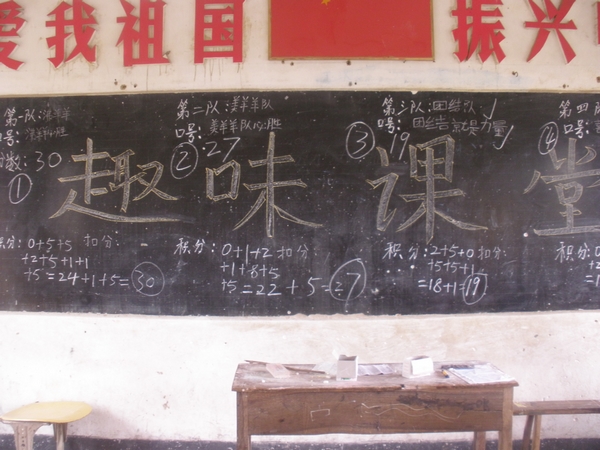 爱我祖国
振兴
第一队:
口号:
分数:30
①
第二队:美羊羊队
口号:美羊羊队必胜
② 27
第三队:团结队
口号:团结就是力量
③ 19
第四队
④
趣味课堂
积分:0+5+5 扣分:
+2+5+1+1
+5=24+1+5=30
积分:0+1+2 扣分:
+1+8+5
+5=22+5=27
积分:2+5+0 扣分:
+5+5+1
=18+1=19
积分: